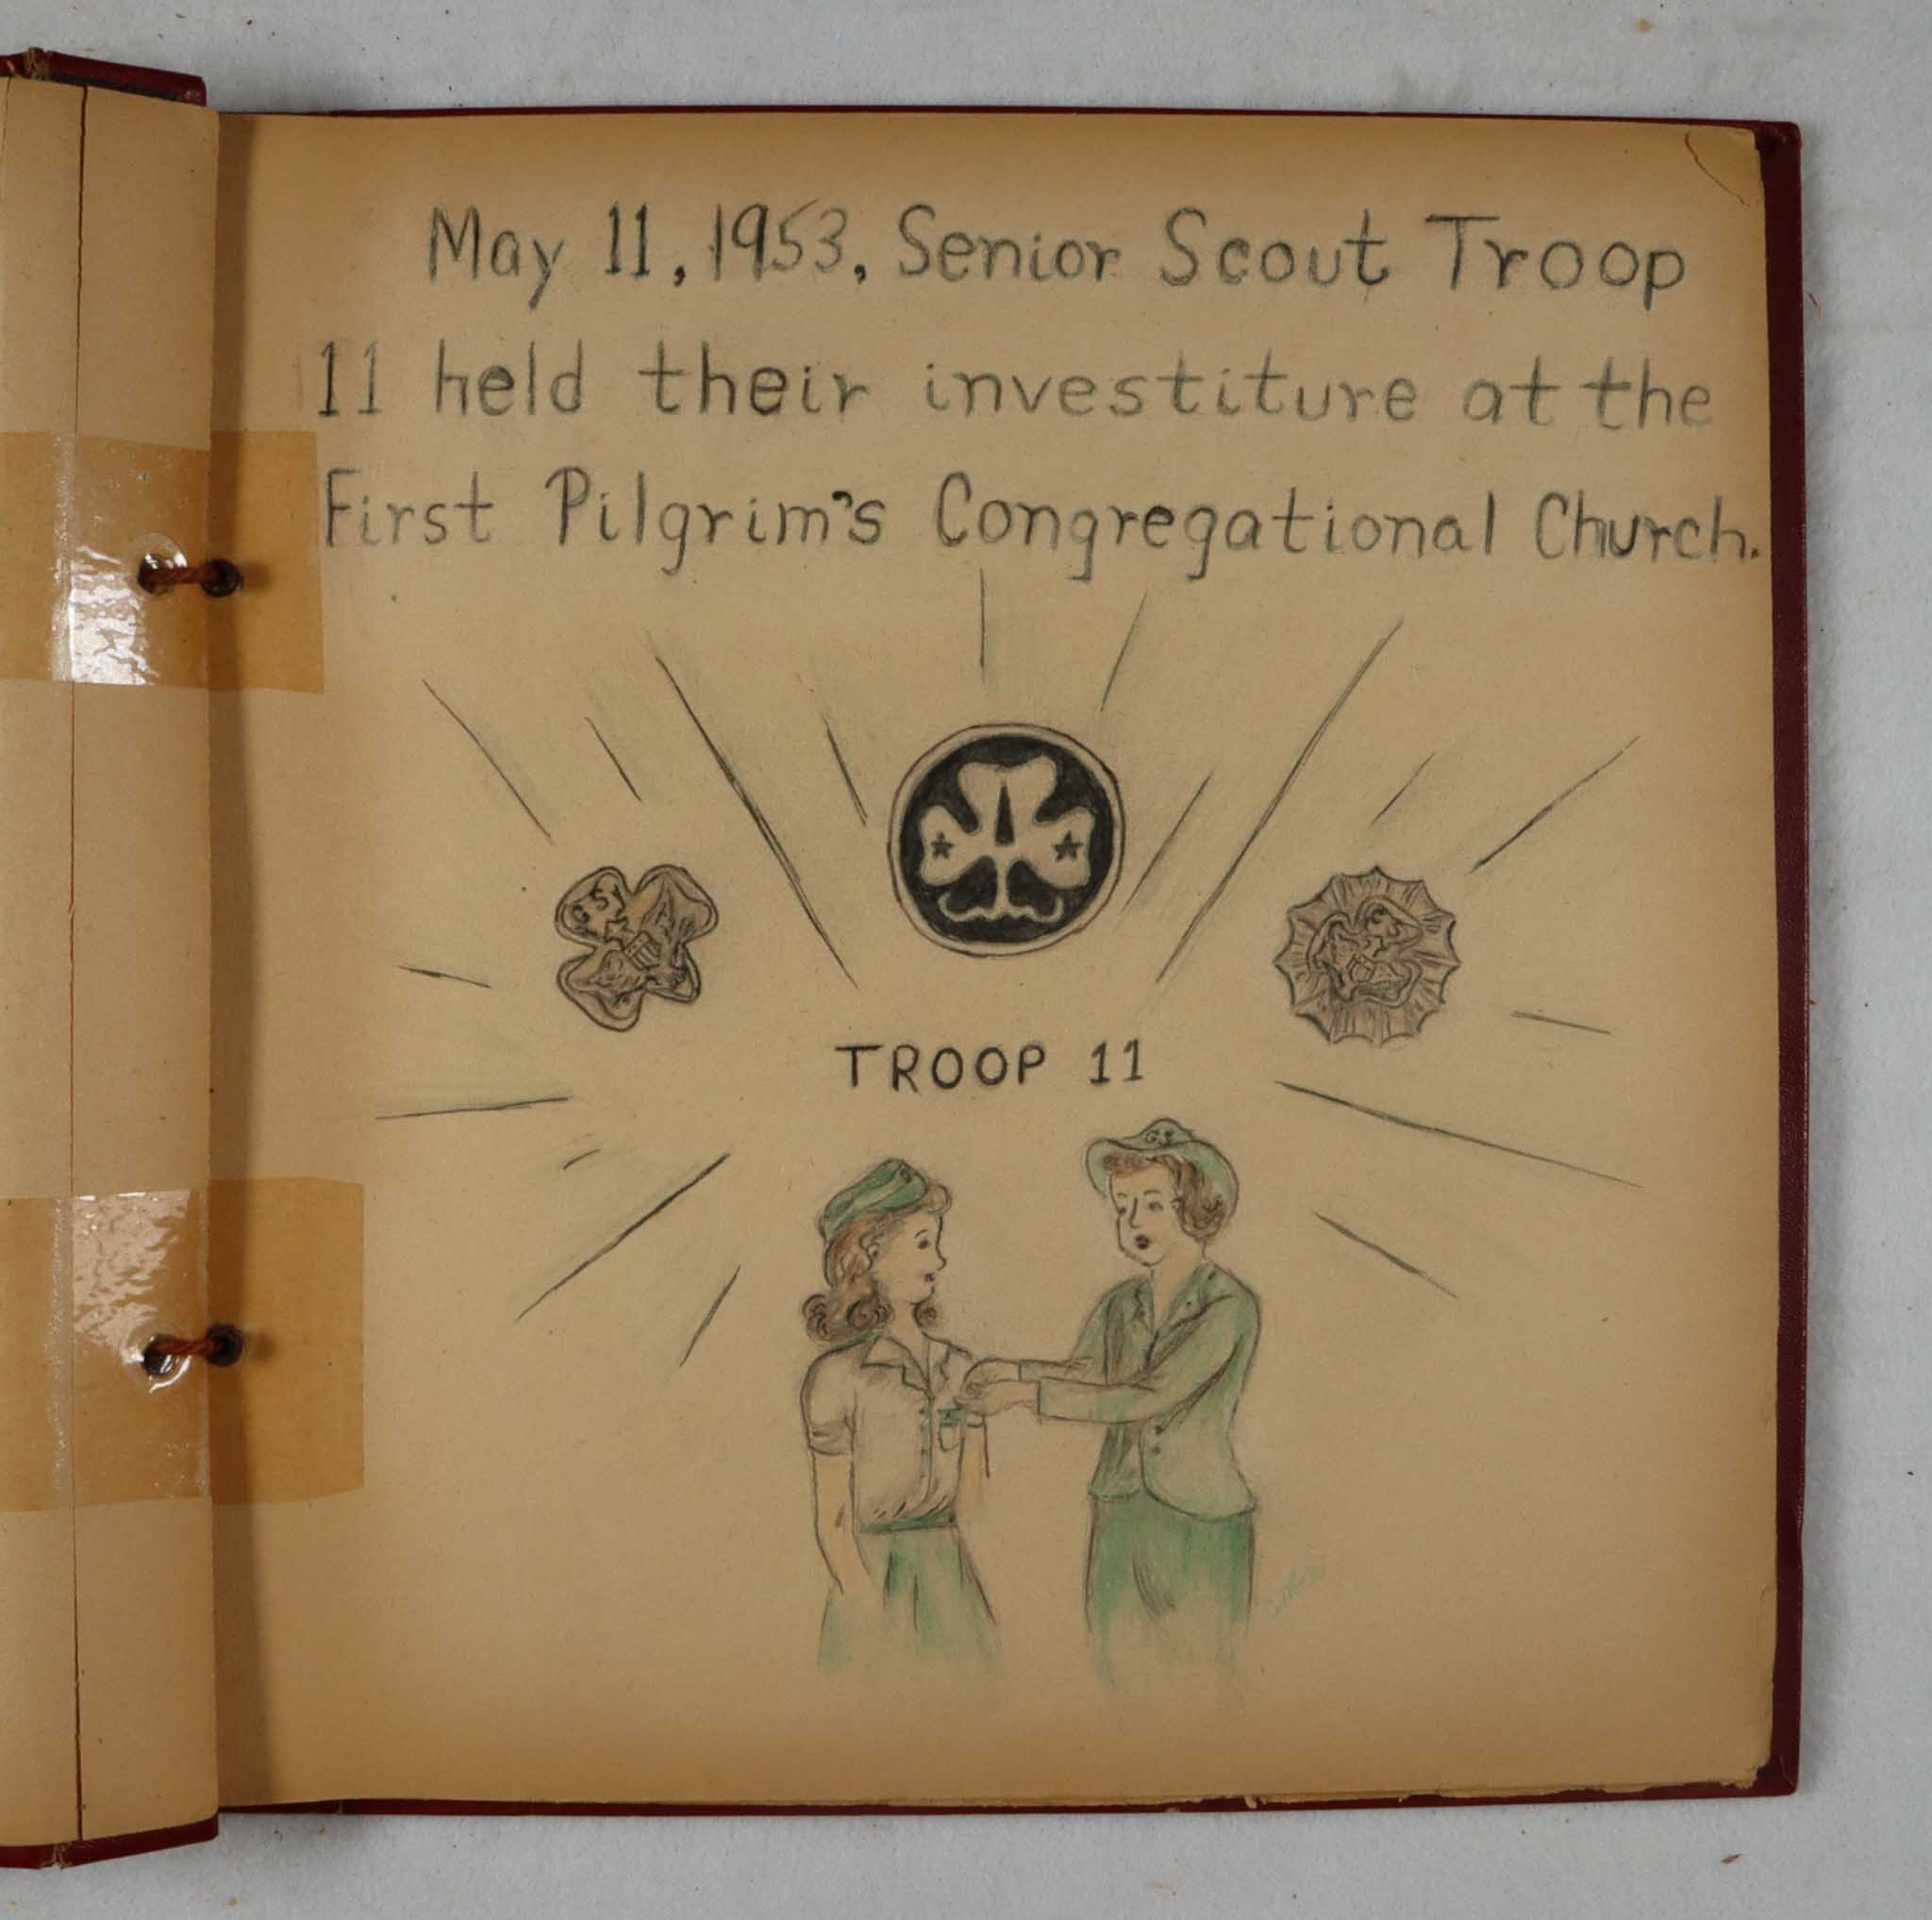 May 11, 1953, Senior Scout Troop
11 held their investiture at the
First Pilgrim's Congregational Church.
GS
TROOP 11
GS